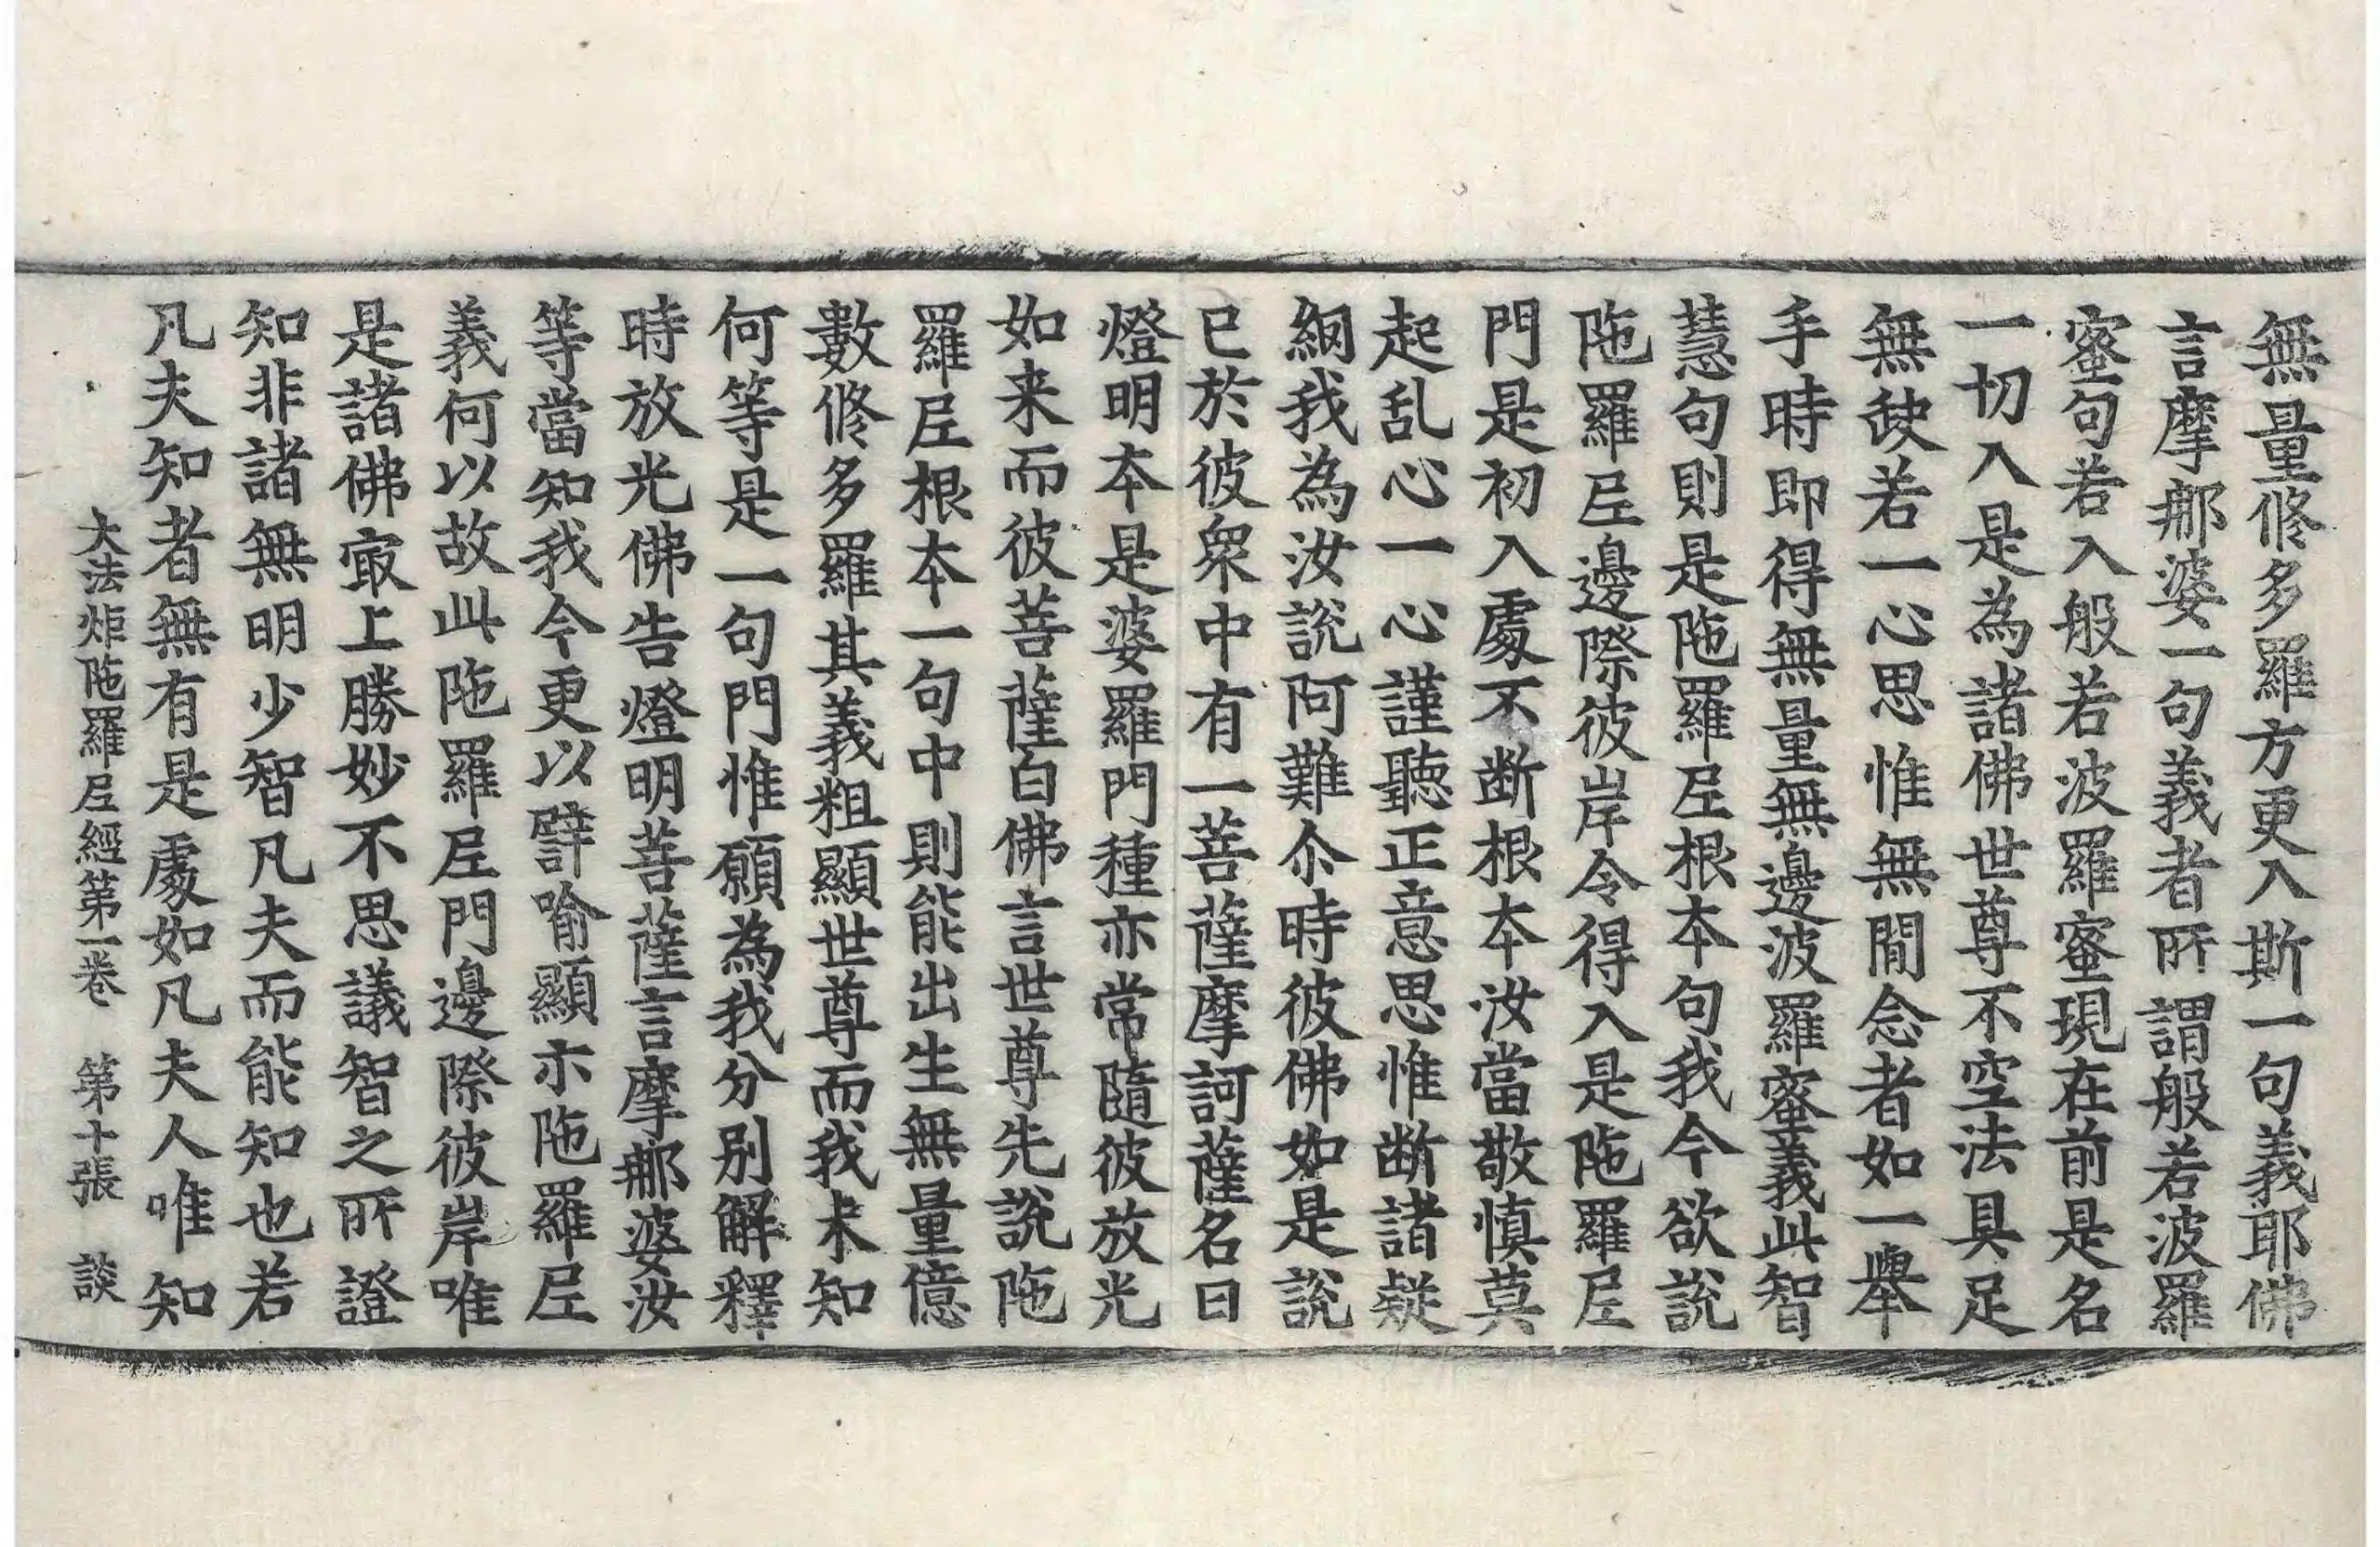 無量修多羅方更入斯一句義耶佛
言摩那婆一句義者所謂般若波羅
蜜句若入般若波羅蜜現在前是名
一切入是為諸佛世尊不空法具足
無缺若一心思惟無閒念者如一舉
手時即得無量無邊波羅蜜義此智
慧句則是陁羅尼根本句我今欲說
陁羅尼邊際彼岸令得入是陁羅尼
門是初入處不断根本汝當敬慎莫
起乱心一心謹聽正意思惟断諸疑
網我為汝說阿難尒時彼佛如是說
已於彼衆中有一菩薩摩訶薩名曰
燈明本是婆羅門種亦常隨彼放光
如来而彼菩薩白佛言世尊先說陁
羅尼根本一句中則能出生無量億
數修多羅其義粗顯世尊而我未知
何等是一句門惟願為我分別解釋
時放光佛告燈明菩薩言摩那婆汝
等當知我今更以譬喻顯示陁羅尼
義何以故此陁羅尼門邊際彼岸唯
是諸佛㝡上勝妙不思議智之所證
知非諸無明少智凡夫而能知也若
凡夫知者無有是處如凡夫人唯知
大法炬陁羅尼經第一卷　第十張　談